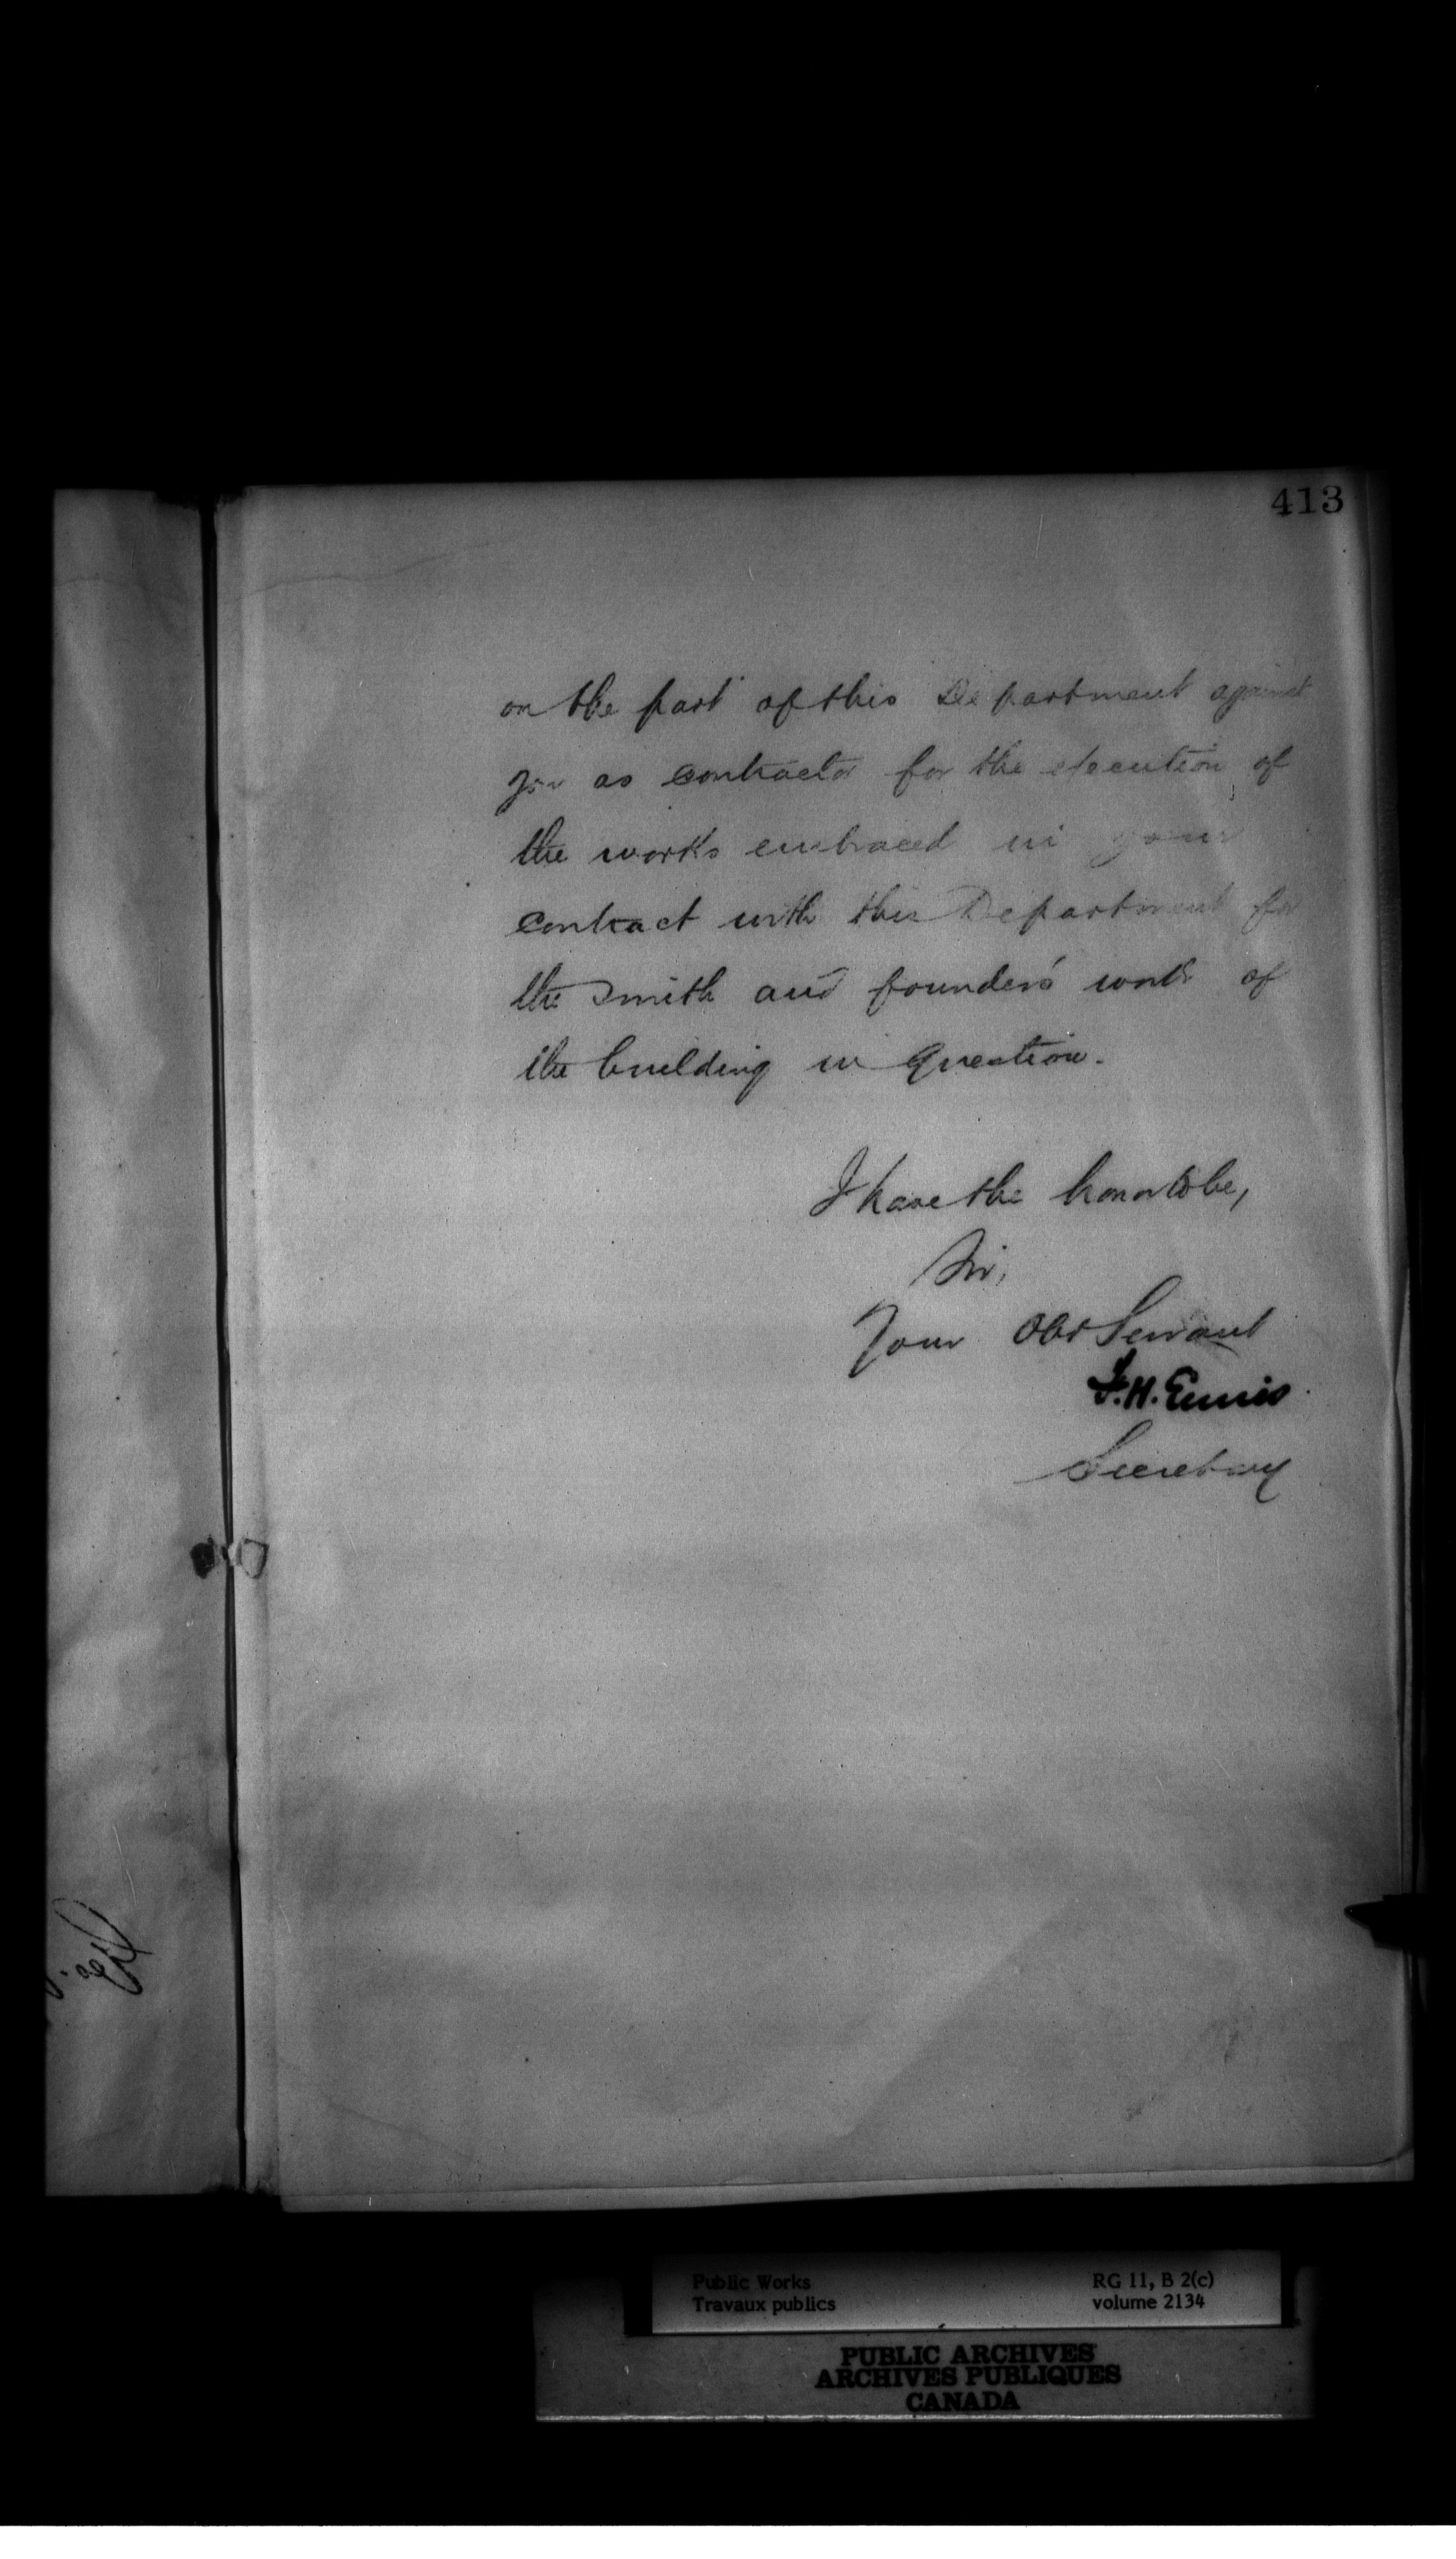 413
on the part of this Department against
you as contractor for the execution of
the works embraced in your
contract with this Department for
the Smith and founder's work of
the building in question.
I have the honor to be,
Sir,
Your Obt Servant
F.H. Ennis
Secretary
Public Works RG 11, B 2(c)
Travaux publics volume 2134
PUBLIC ARCHIVES
ARCHIVES PUBLIQUES
CANADA